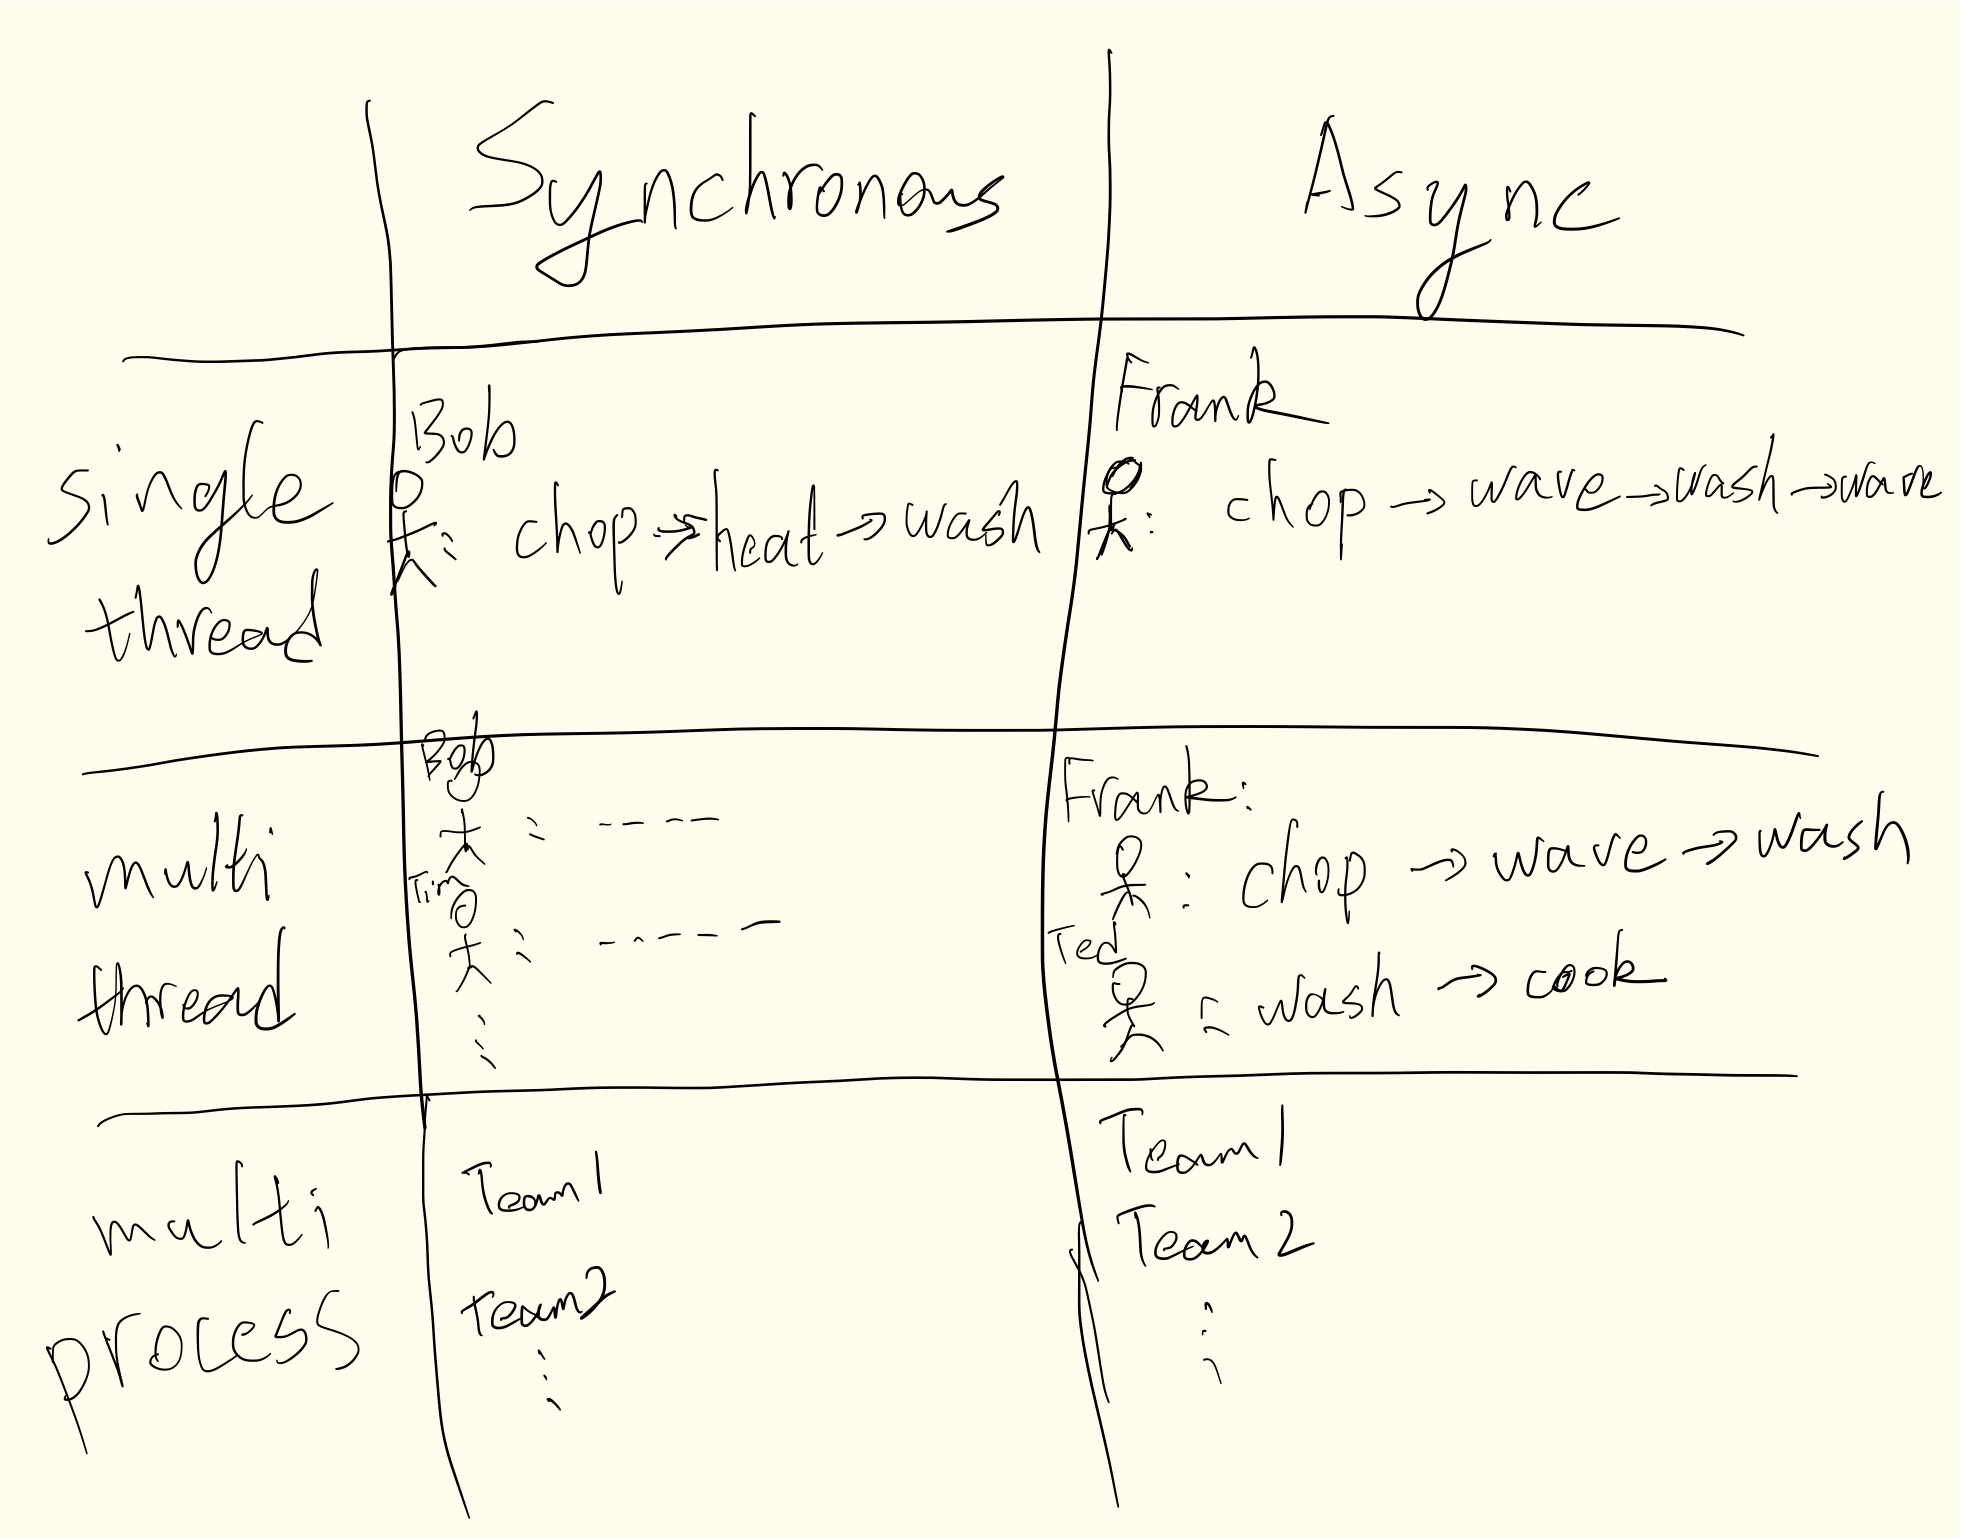 Synchronous
Async
single
thread
Bob
: chop → heat → wash
Frank
: chop → wave → wash → wave
multi
thread
Bob
: - - - -
Tim
: - - - - -
Frank:
: chop → wave → wash
Ted
: wash → cook
multi
process
Team 1
Team 2
Team 1
Team 2